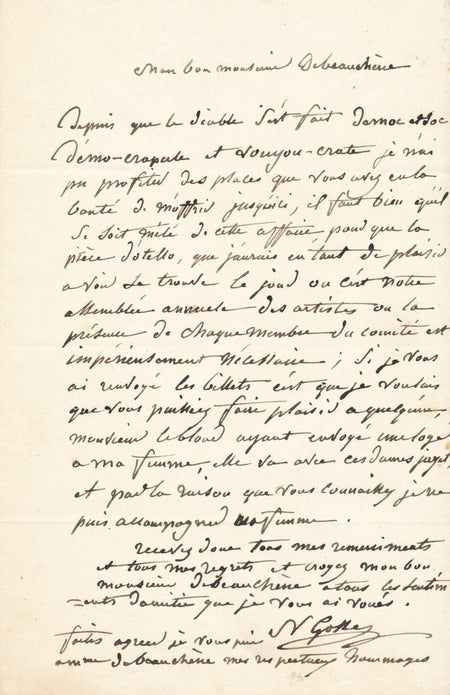 Mon bon monsieur Debeauchêne
Depuis que le diable s'est fait démoc et soc
démo-crapule et vouyou-crate je n'ai
pu profiter des places que vous avez eu la
bonté de m'offrir jusqu'ici, il faut bien qu'il
se soit mélé de cette affaire pour que la
pièce d'otello, que j'aurais eu tant de plaisir
a voir se trouve le jour ou c'est notre
assemblée annuele des artistes ou la
présence de chaque membre du comité est
impérieusement nécessaire ; si je vous
ai renvoyé les billets c'est que je voulais
que vous puissiez faire plaisir a quelqu'un,
monsieur leblond ayant envoyé une loge
a ma femme, elle va avec ces dames
et par la raison que vous connaissez je ne
puis accompagner ma femme .
recevez donc tous mes remerciments
et tous mes regrets et croyez mon bon
monsieur debeauchêne a tous les sentim
=ents d'amitié que je vous ai voués .
faites agreer je vous prie
a mme debeauchêne mes respectueux hommages